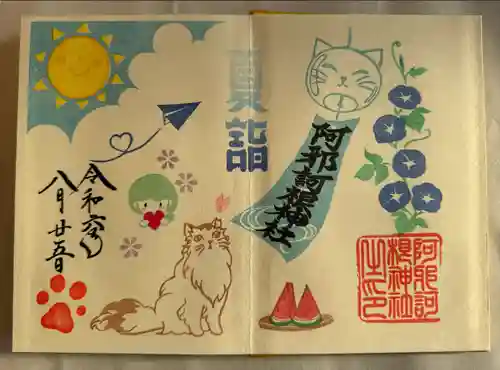 夏詣
阿邪訶根神社
阿邪訶
根神社
之印
令和六年
八月廿五日